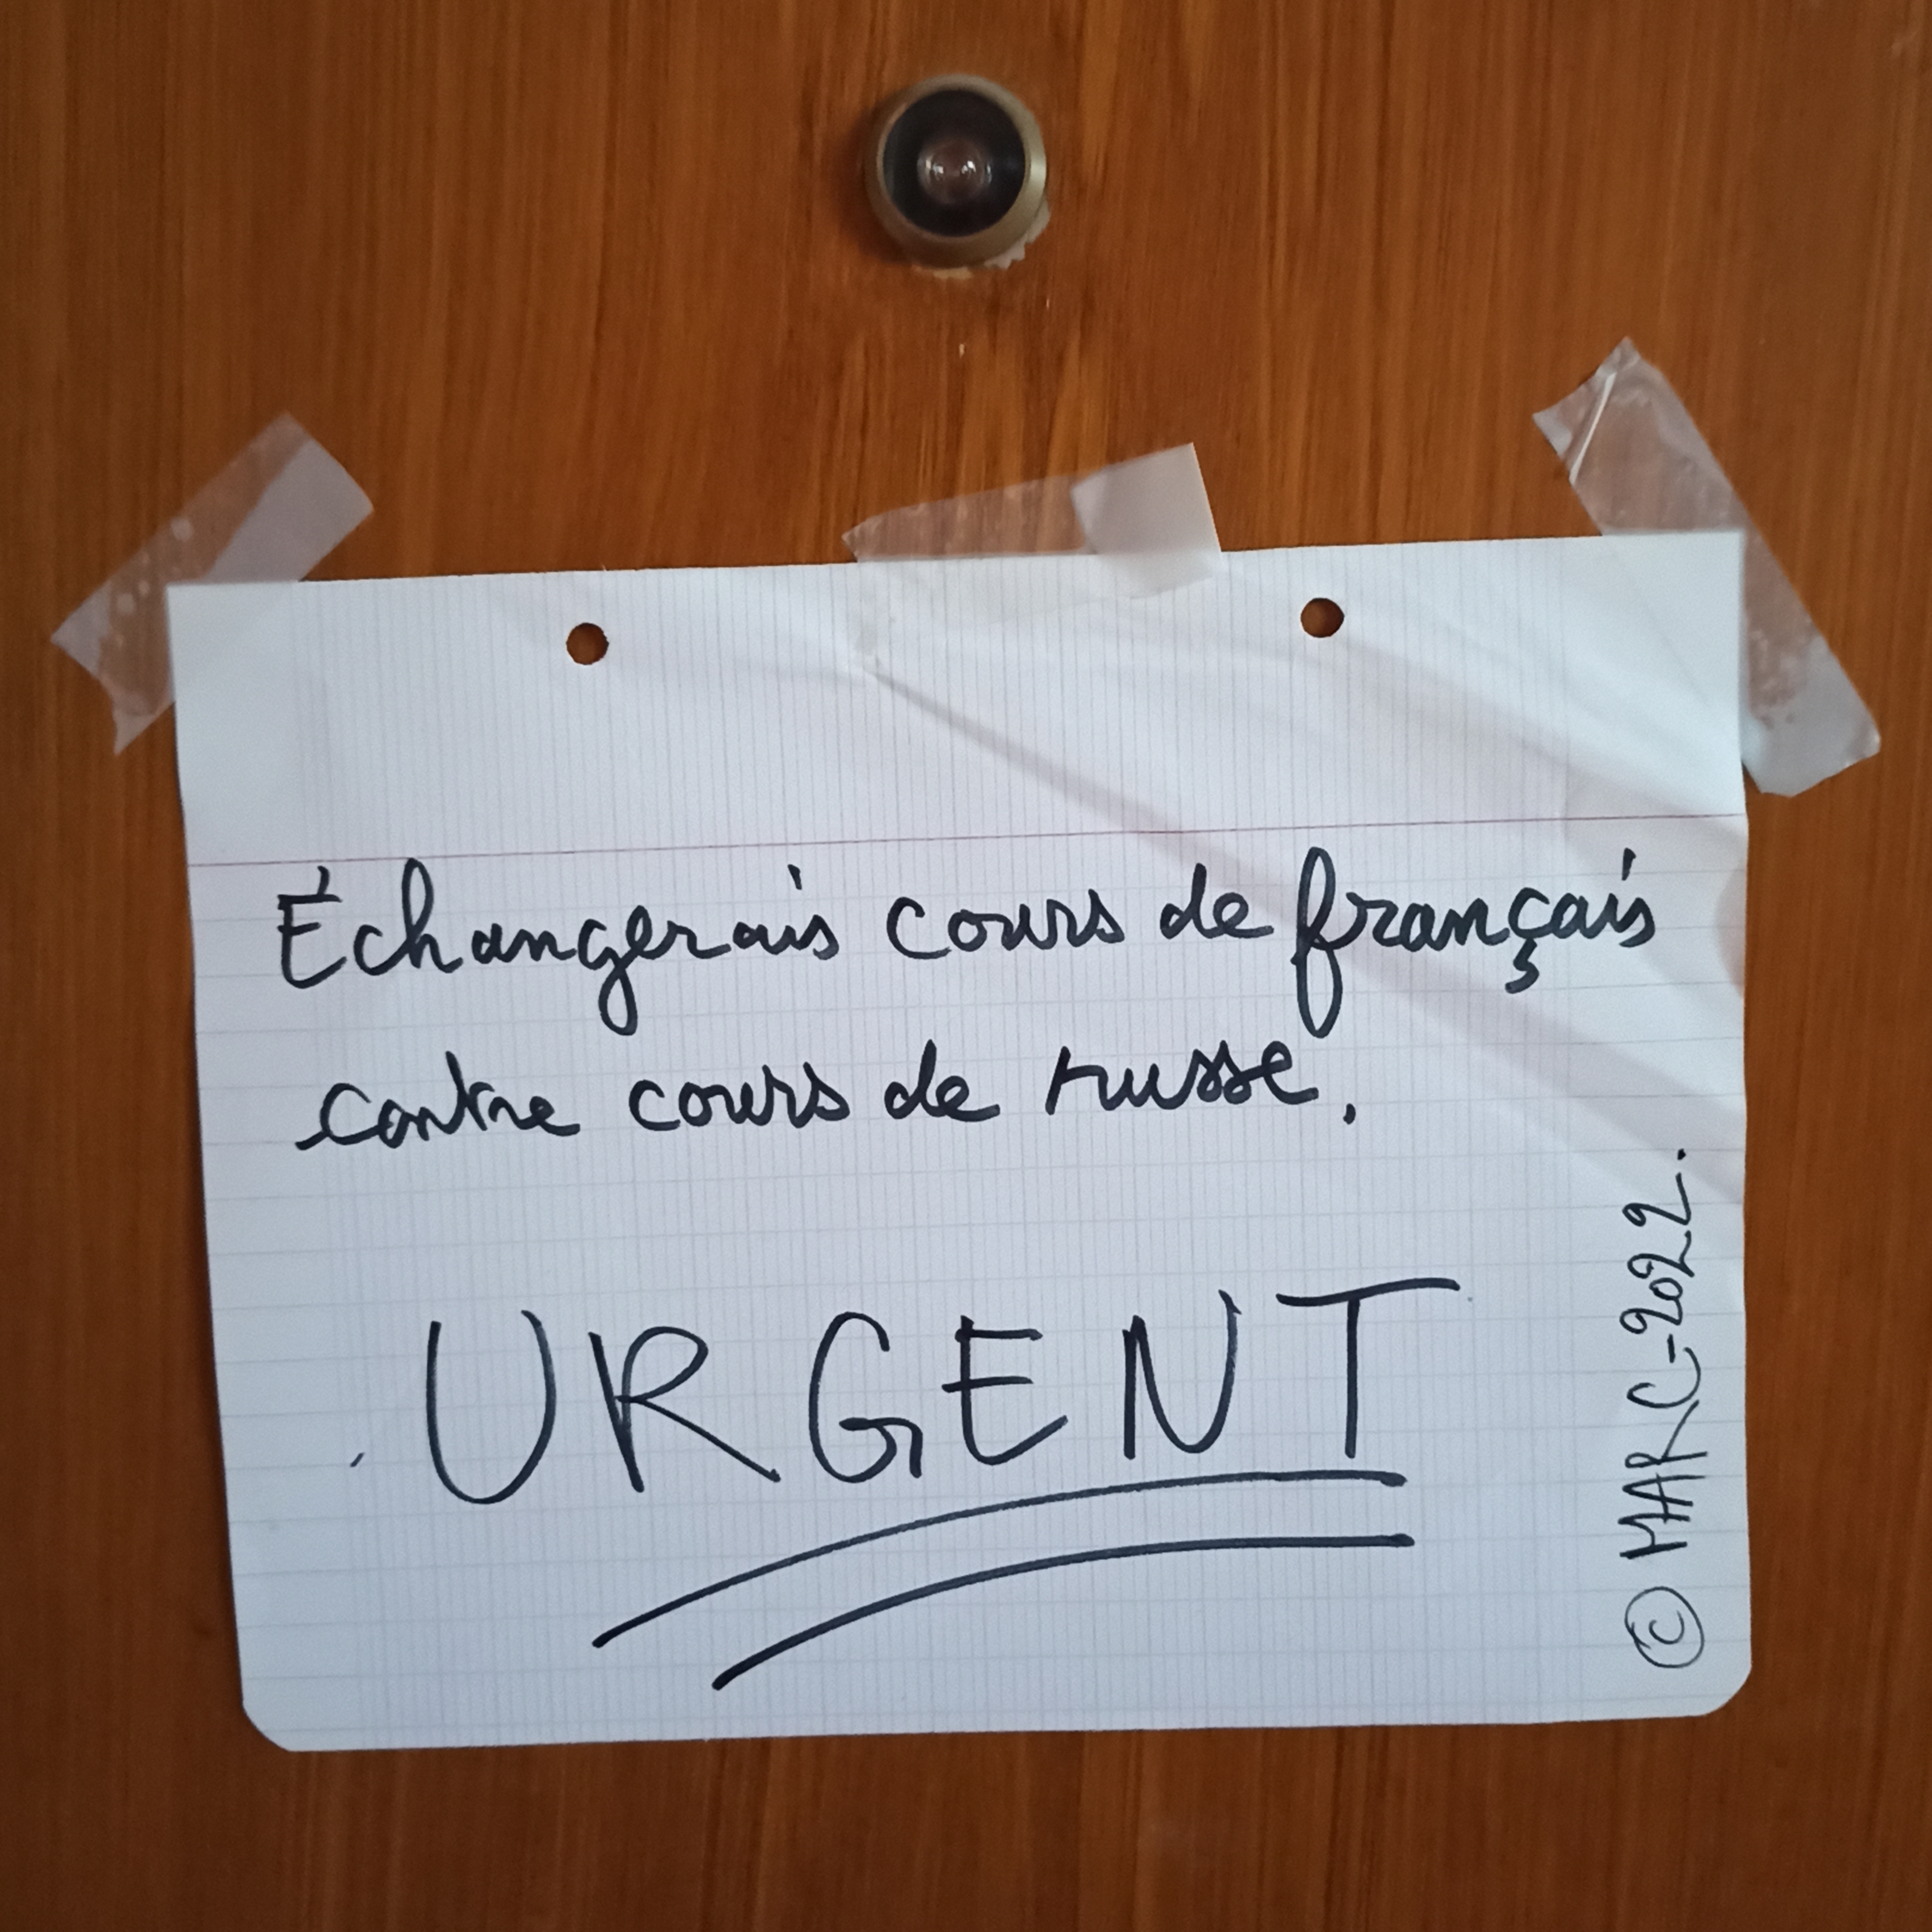 Échangerais cours de français
contre cours de russe.
URGENT
© MARC-2022.